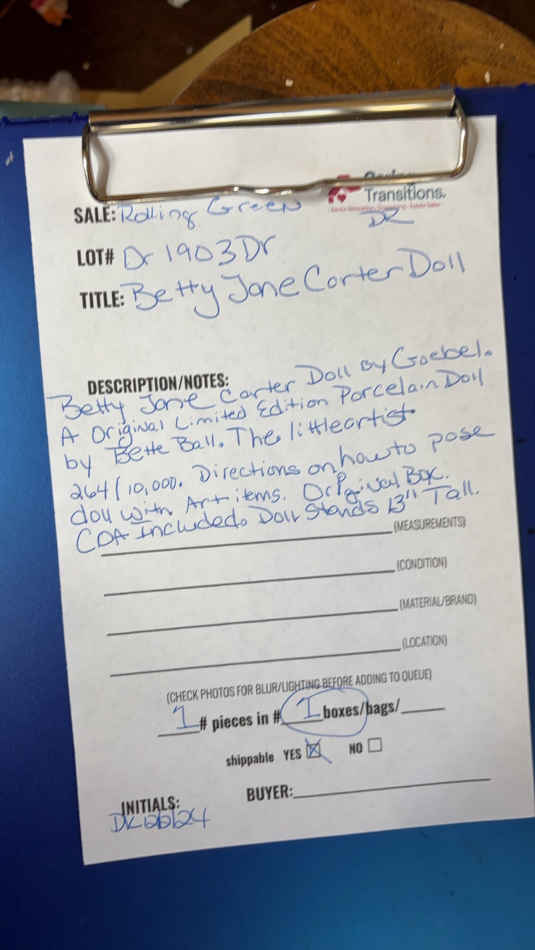 Transitions.
SALE: Rolling Green
DR
LOT# Dr 1903 Dr
TITLE: Betty Jane Carter Doll
DESCRIPTION/NOTES:
Betty Jane Carter Doll by Goebel.
A Original Limited Edition Porcelain Doll
by Bette Ball. The littleartist
264/10,000. Directions on how to pose
doll with Art items. Original Box.
COA Included. Doll Stands 13" Tall.
(MEASUREMENTS)
(CONDITION)
(MATERIAL/BRAND)
(LOCATION)
(CHECK PHOTOS FOR BLUR/LIGHTING BEFORE ADDING TO QUEUE)
1 # pieces in # 1 boxes/bags/
shippable YES NO
BUYER:
INITIALS: